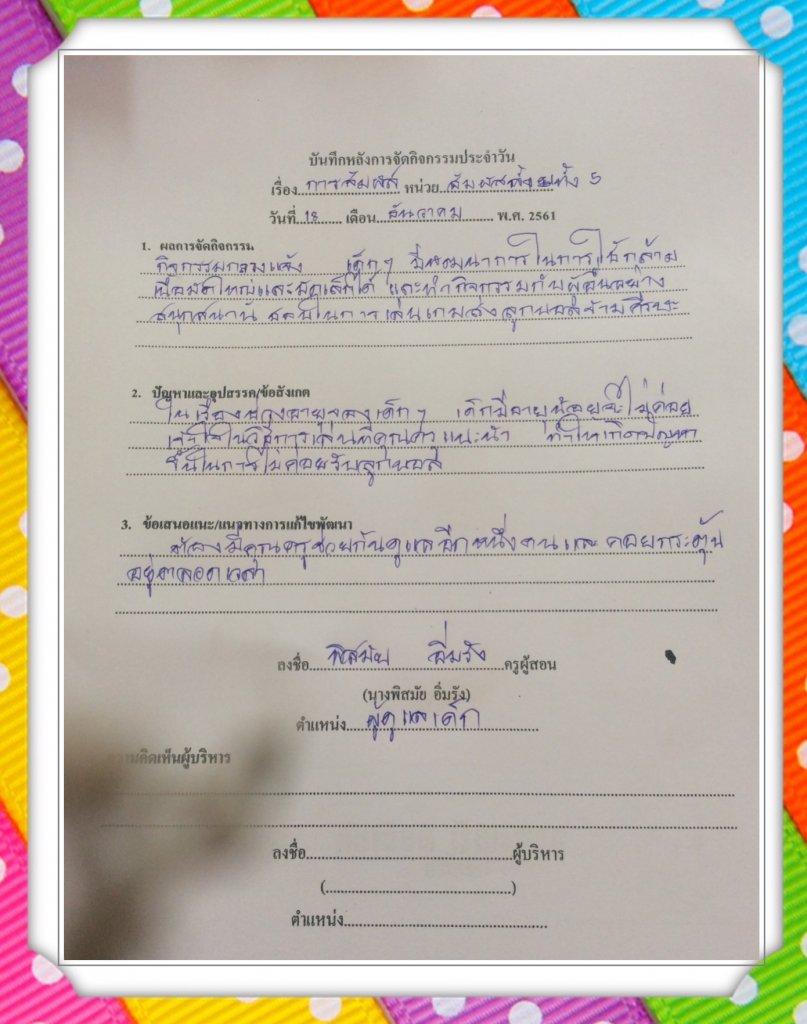 บันทึกหลังการจัดกิจกรรมประจำวัน
เรื่อง การสัมผัส หน่วย สัมผัสทั้ง 5
วันที่ 18 เดือน ธันวาคม พ.ศ. 2561
1. ผลการจัดกิจกรรม
กิจกรรมกลางแจ้ง เด็กๆ มีพัฒนาการในการใช้กล้าม
เนื้อมัดใหญ่และมัดเล็กได้ และทำกิจกรรมกับผู้อื่นอย่าง
สนุกสนาน ในการเล่นเกมส่งลูกบอลข้ามศีรษะ
2. ปัญหาและอุปสรรค/ข้อสังเกต
ในเรื่องช่วงอายุของเด็กๆ เด็กมีอายุน้อยจะไม่ค่อย
เข้าใจในวิธีการเล่นที่คุณครูแนะนำ ทำให้เกิดปัญหา
ขึ้นในการไม่ค่อยรับลูกบอล
3. ข้อเสนอแนะ/แนวทางการแก้ไขพัฒนา
ต้องมีคุณครูช่วยกันดูแลอีกหนึ่งคนและคอยกระตุ้น
อยู่ตลอดเวลา
ลงชื่อ พิสมัย อิ่มรัง ครูผู้สอน
(นางพิสมัย อิ่มรัง)
ตำแหน่ง ผู้ดูแลเด็ก
ความคิดเห็นผู้บริหาร
ลงชื่อ ผู้บริหาร
(. )
ตำแหน่ง